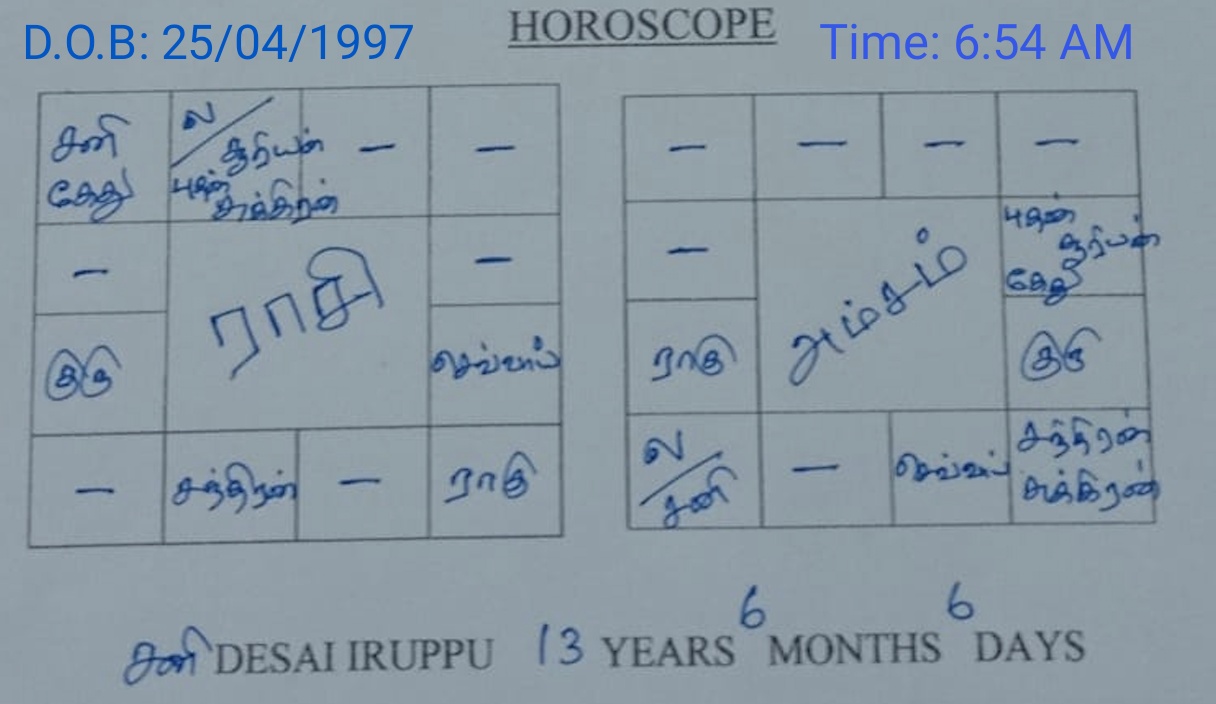 HOROSCOPE
D.O.B: 25/04/1997
Time: 6:54 AM
சனி
கேது
ல
சூரியன்
புதன்
சுக்கிரன்
—
—
—
—
ராசி
குரு
செவ்வாய்
—
சந்திரன்
—
ராகு
—
—
—
—
—
புதன்
சூரியன்
கேது
அம்சம்
ராகு
குரு
ல
சனி
—
செவ்வாய்
சந்திரன்
சுக்கிரன்
சனி DESAI IRUPPU 13 YEARS 6 MONTHS 6 DAYS